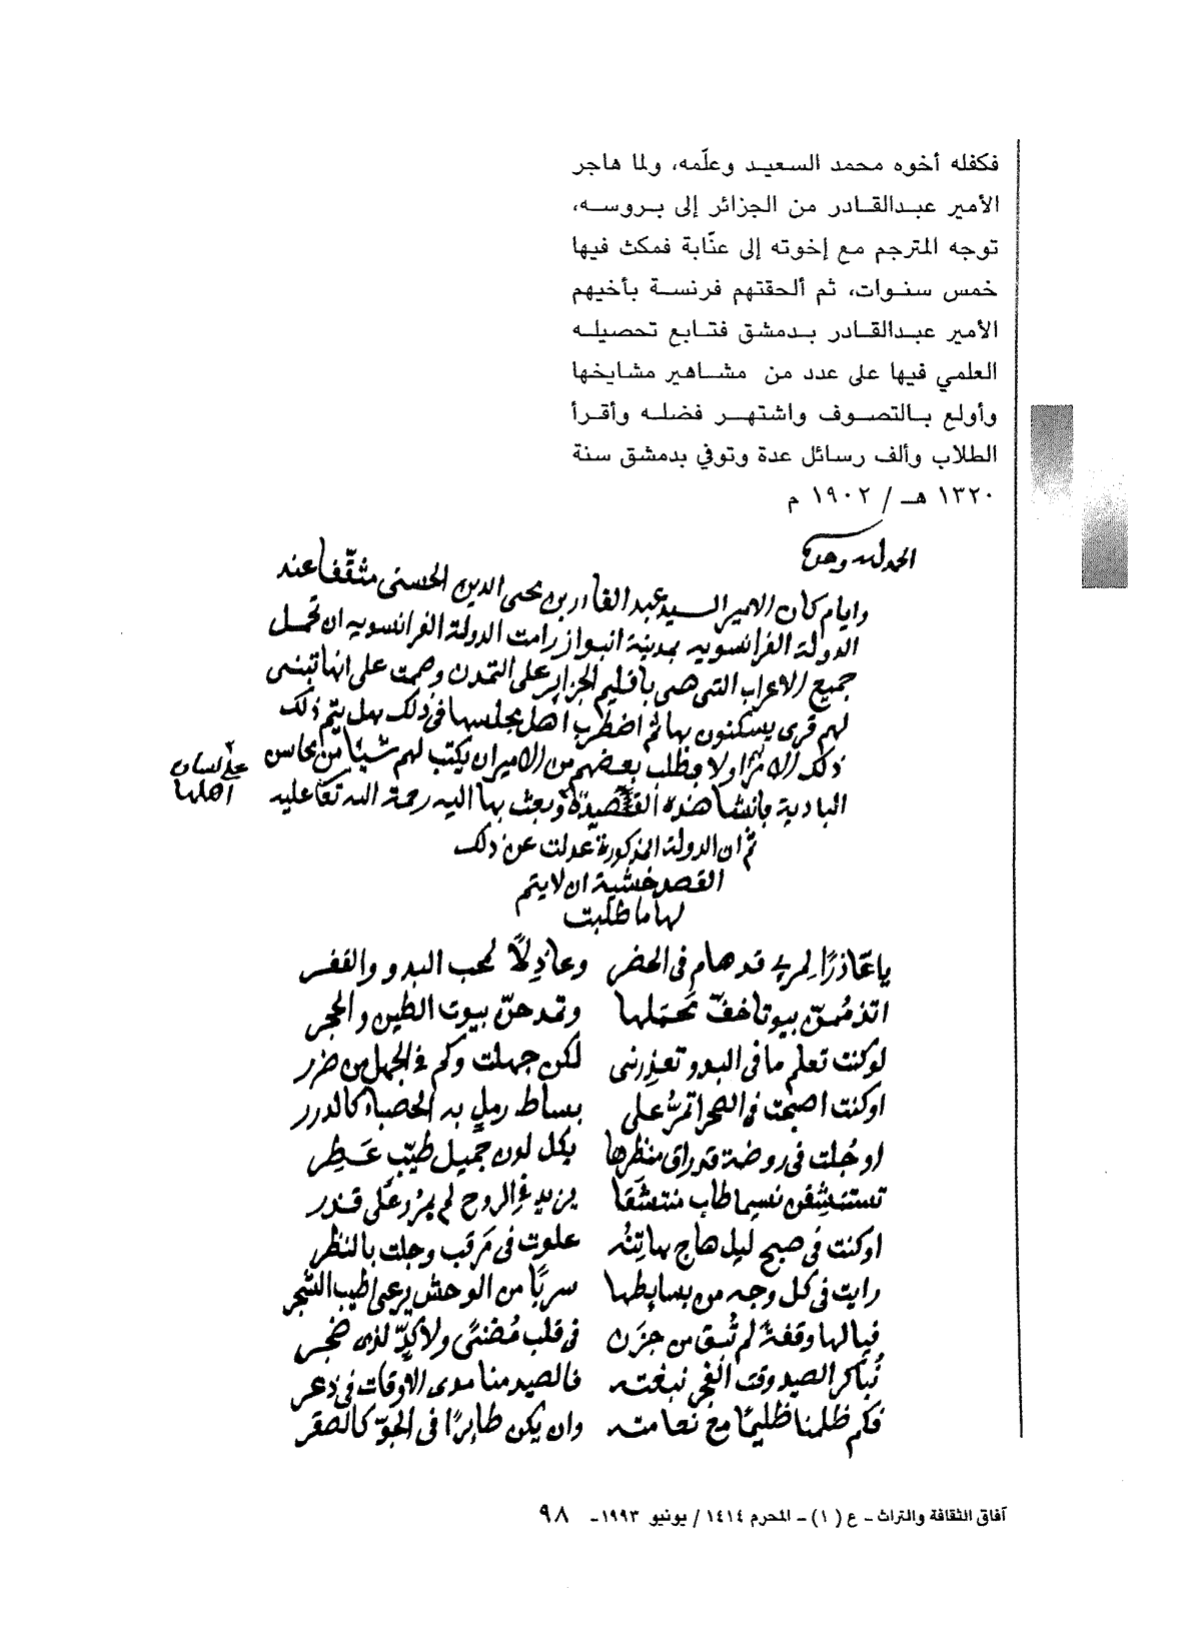 فكفله أخوه محمد السعيد وعلّمه، ولما هاجر
الأمير عبدالقادر من الجزائر إلى بروسه،
توجه المترجم مع إخوته إلى عنّابة فمكث فيها
خمس سنوات، ثم ألحقتهم فرنسة بأخيهم
الأمير عبدالقادر بدمشق فتابع تحصيله
العلمي فيها على عدد من مشاهير مشايخها
وأولع بالتصوف واشتهر فضله وأقرأ
الطلاب وألف رسائل عدة وتوفي بدمشق سنة
١٣٢٠ هـ / ١٩٠٢ م
الحمد لله وحده
وايام كان الامير السيد عبد القادر بن محيى الدين الحسنى مثقّفا عند
الدولة الفرانسويه بمدينة انبواز رامت الدولة الفرانسويه ان تحمل
جميع الاعراب التى هى باقليم الجزاير على التمدن وصممت على انها تبنى
لهم قرى يسكنون بها ثم اضطرب اهل مجلسها فى ذلك هل يتم ذلك
ذلك الامر او لا فطلب بعضهم من الامير ان يكتب لهم شيئا من محاسن
على لسان اهلها
البادية فانشا هذه القصيدة وبعث بها اليه رحمة الله تعا عليه
ثم ان الدولة المذكورة عدلت عن ذلك
القصد خشية ان لا يتم
لها ما طلبت
يا عاذرًا لمرء قد هام فى الحضر وعاذِلًا لمحب البدو والقفر
اتذمُمنّ بيوتا خفّ تحمَلها وتمدحنّ بيوت الطين والحجر
لو كنت تعلم ما فى البدو تعذرنى لكن جهلت وكم فى الجهل من ضرر
او كنت اصبحت فى الصحرا ترُ على بساط رمل به الحصباء كالدرر
او جُلت فى روضة قد راق منظرها بكل لون جميل طيّب عَطِر
تستنشِقن نسيما طاب منتشَقا يزيد فى الروح لم يمرُر على قذر
او كنت فى صبح ليل هاج هاتِنُه علوت فى مَرقب وجلت بالنظر
رايت فى كل وجه من بسايطها سربًا من الوحش يرعى اطيب الشجر
فيالها وقفةً لم تُبق من حزَن فى قلب مُضنىً ولا كدٍّ لذى ضجر
نُباكر الصيد وقت الفجر نبغته فالصيد منا مدى الاوقات فى ذعر
فكم ظلمنا ظليمًا مع نعامته وان يكن طايرًا فى الجوّ كالصقر
آفاق الثقافة والتراث - ع (١) - المحرم ١٤١٤ / يونيو ١٩٩٣ - ٩٨